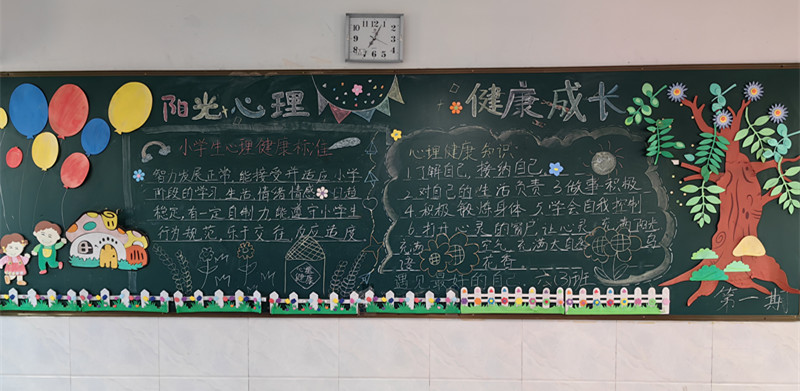 阳光心理 健康成长
小学生心理健康标准
智力发展正常,能接受并适应小学
阶段的学习生活,情绪情感
稳定,有一定自制力,能遵守小学生
行为规范,乐于交台,反应适度
心理健康知识
1.了解自己,接纳自己
2.对自己的生活负责 3.做事积极
4.积极锻炼身体 5.学会自我控制
6.打开心灵的窗户,让心灵
遇见最 的自己
六(3)班
第一期